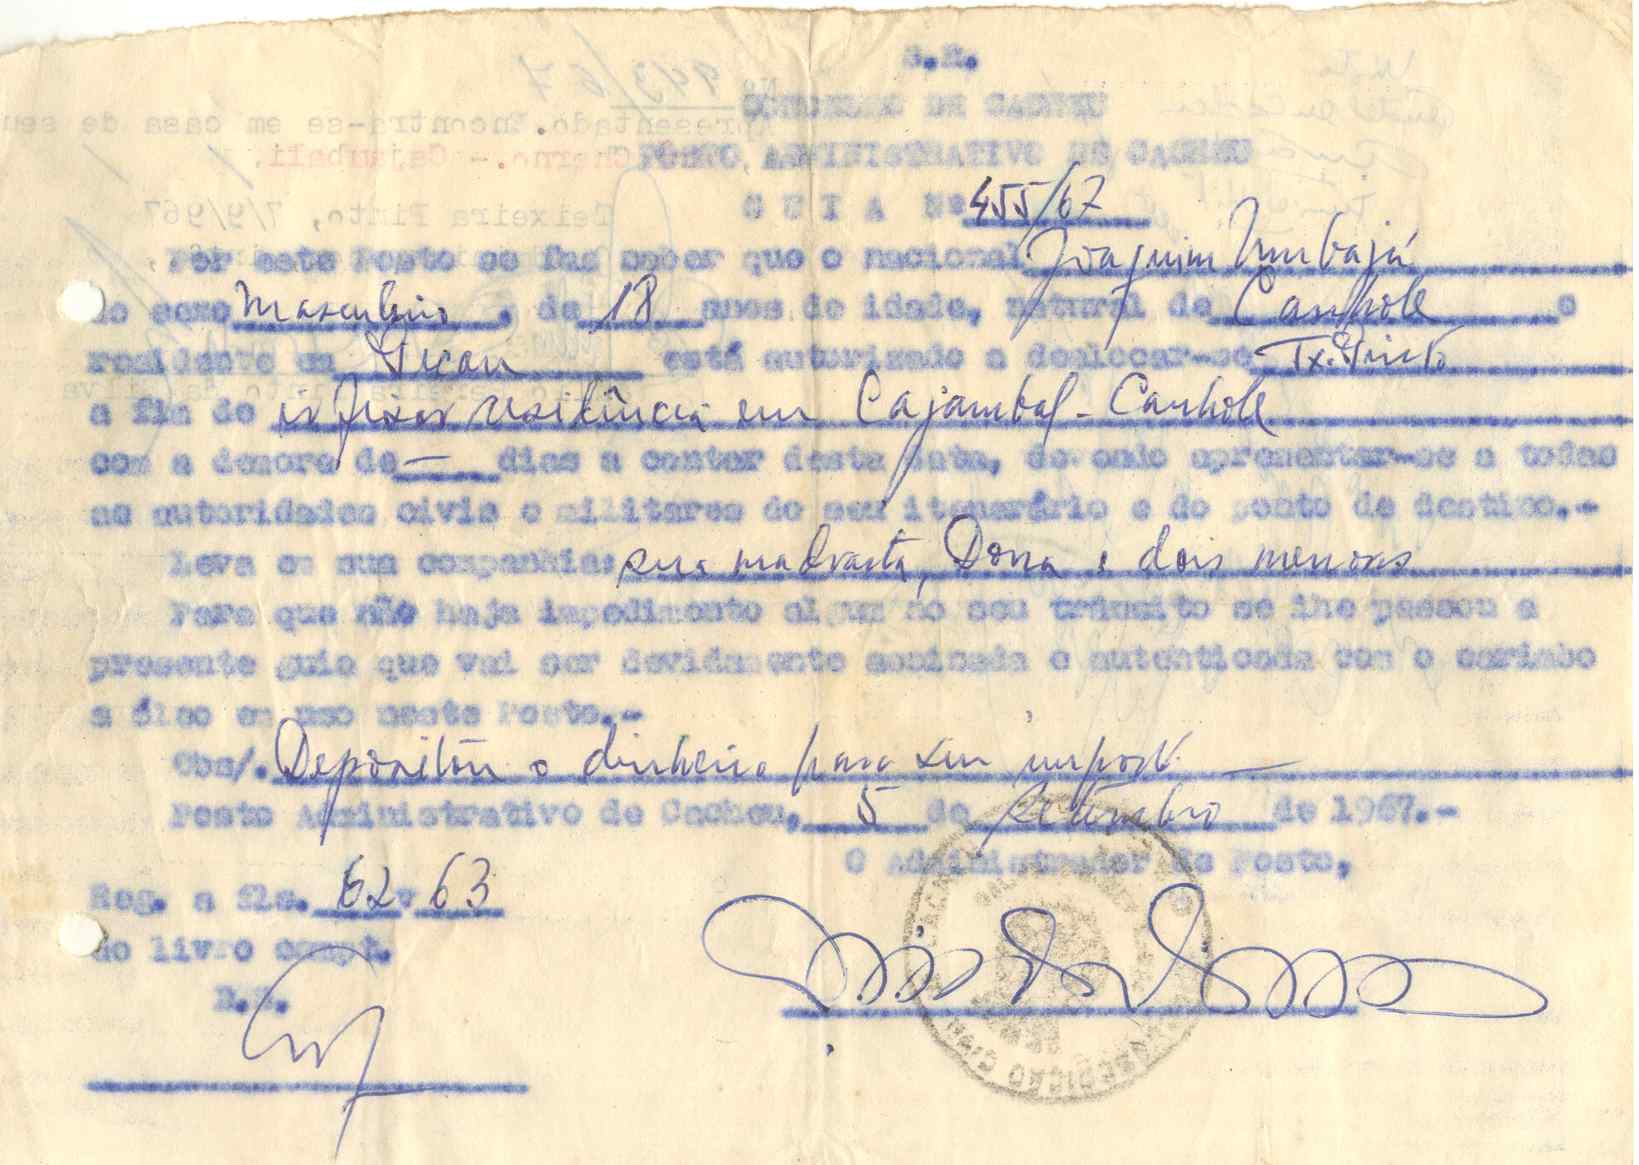 S.R.
CONCELHO DE CACHEU
POSTO ADMINISTRATIVO DE CACHEU
G U I A Nº 455/67
Por este Posto se faz saber que o nacional Joaquim Umbajá
do sexo Masculino, de 18 anos de idade, natural de Canhole e
residente em está autorizado a deslocar-se Tx. Pinto
a fim de ir fixar residência em Cajambal - Canhole
com a demora de — dias a contar desta data, devendo apresentar-se a todas
as autoridades civis e militares do seu itenerário e do ponto de destino.-
Leva em sua companhia: sua madrasta, Dona e dois menores
Para que não haja impedimento algum no seu trânsito se lhe passou a
presente guia que vai ser devidamente assinada e autenticada com o carimbo
a óleo em uso neste Posto.-
Obs/. Depositou o dinheiro para seu imposto —
Posto Administrativo de Cacheu, 5 de Setembro de 1967.-
O Administrador de Posto,
Reg. a fls. 62v 63
do livro compt.
Nº 943/67
Apresentado. Encontra-se em casa de seu
Cherno.- Cajambali.
Teixeira Pinto, 7/9/967